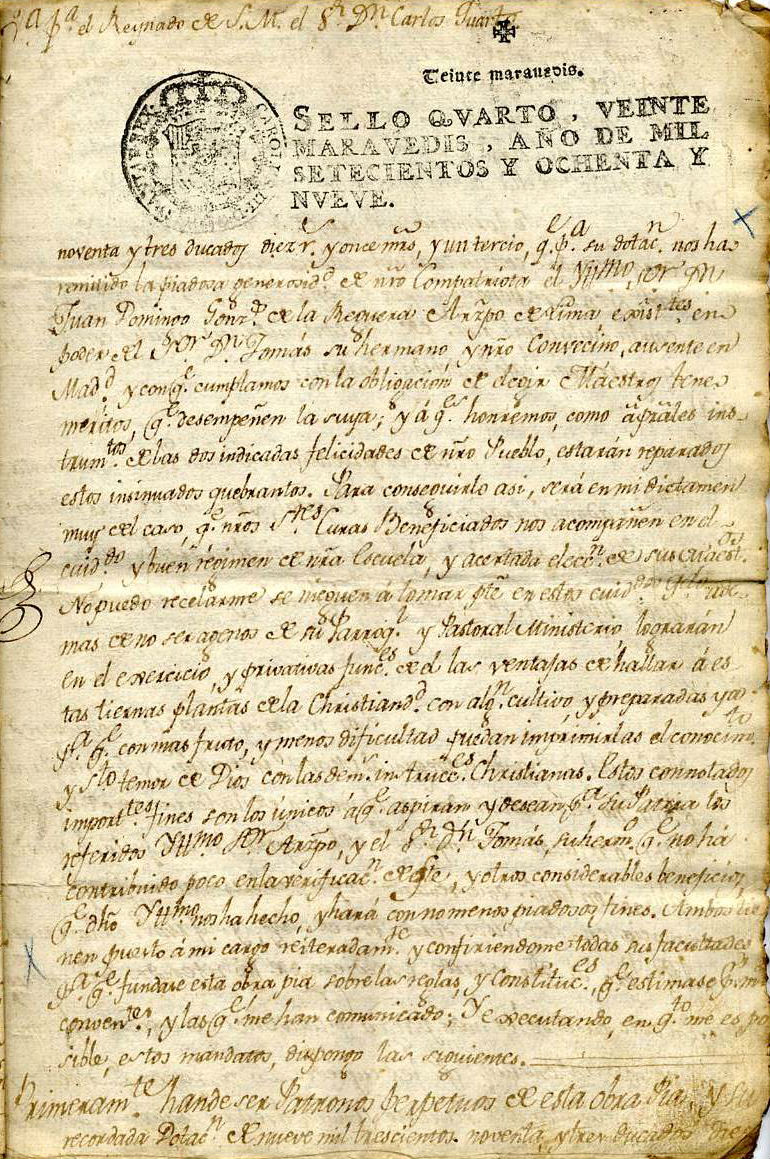 pª el Reynado de S.M. el Sʳ Dⁿ Carlos Quarto
Veinte marauedis.
SELLO QVARTO, VEINTE
MARAVEDIS, AÑO DE MIL
SETECIENTOS Y OCHENTA Y
NVEVE.
noventa y tres ducados diez rˢ y once mrs, y un tercio, qᵉ pª su dotacⁿ nos ha
remitido la piadosa generosidᵈ de nrō Compatriota el Yllmo Sor Dⁿ
Juan Domingo Gonzᶻ de la Reguera Arzpo de Lima existᵗᵉˢ en
poder del Sʳ Dⁿ Tomás su hermano y nrō Convecino, ausente en
Madᵈ y con qᵉ cumplamos con la obligación de elegir Maestros bene
meritos, qᵉ desempeñen la suya; y á qˢ honremos, como á prāles ins
trumᵗᵒˢ de las dos indicadas felicidades de nrō Pueblo, estarán reparados
estos insinuados quebrantos. Para conseguirlo asi, será en mi dictamen
muy del caso, qᵉ nrōs Sʳᵉˢ Curas Beneficiados nos acompañen en el
cuidᵈᵒ y buen régimen de nrā Escuela, y acertada eleccⁿ de sus Maest.
No puedo recelarme se nieguen á tomar pte en estos cuidᵈᵒˢ
mas de no ser agenos de su Parroqˡ y Pastoral Ministerio, lograrán
en el exercicio, y privativas funcᵉˢ de él las ventajas de hallar á es
tas tiernas plantas de la Christiandᵈ con algⁿ cultivo, y preparadas ya
pª qᵉ con mas fruto, y menos dificultad puedan imprimirlas el conocimᵗᵒ
y sᵗᵒ temor de Dios con las demˢ instruccᵉˢ Christianas. Estos connotados
importᵗᵉˢ fines son los únicos á qᵉ aspiran y desean pª su Patria los
referidos Yllmo Sor Arzpo, y el Sʳ Dⁿ Tomás, su hermᵒ qᵉ no há
contribuido poco en la verificacⁿ de este, y otros considerables beneficios,
qᵉ dhō Yllmo nos ha hecho, y hará con no menos piadosos fines. Ambos tie
nen puesto á mi cargo reiteradamᵗᵉ y confiriendome todas sus facultades
pª qᵉ fundase esta obra pia sobre las reglas, y Constitucᵉˢ, qᵉ estimase
convenᵗᵉˢ, y las qᵉ me han comunicado; Y executando, en qᵗᵒ me es po
sible, estos mandatos, dispongo las siguientes.
Primeramᵗᵉ han de ser Patronos perpetuos de esta obra Pia, y su
recordada Dotacⁿ de nueve mil trescientos noventa, y tres ducados